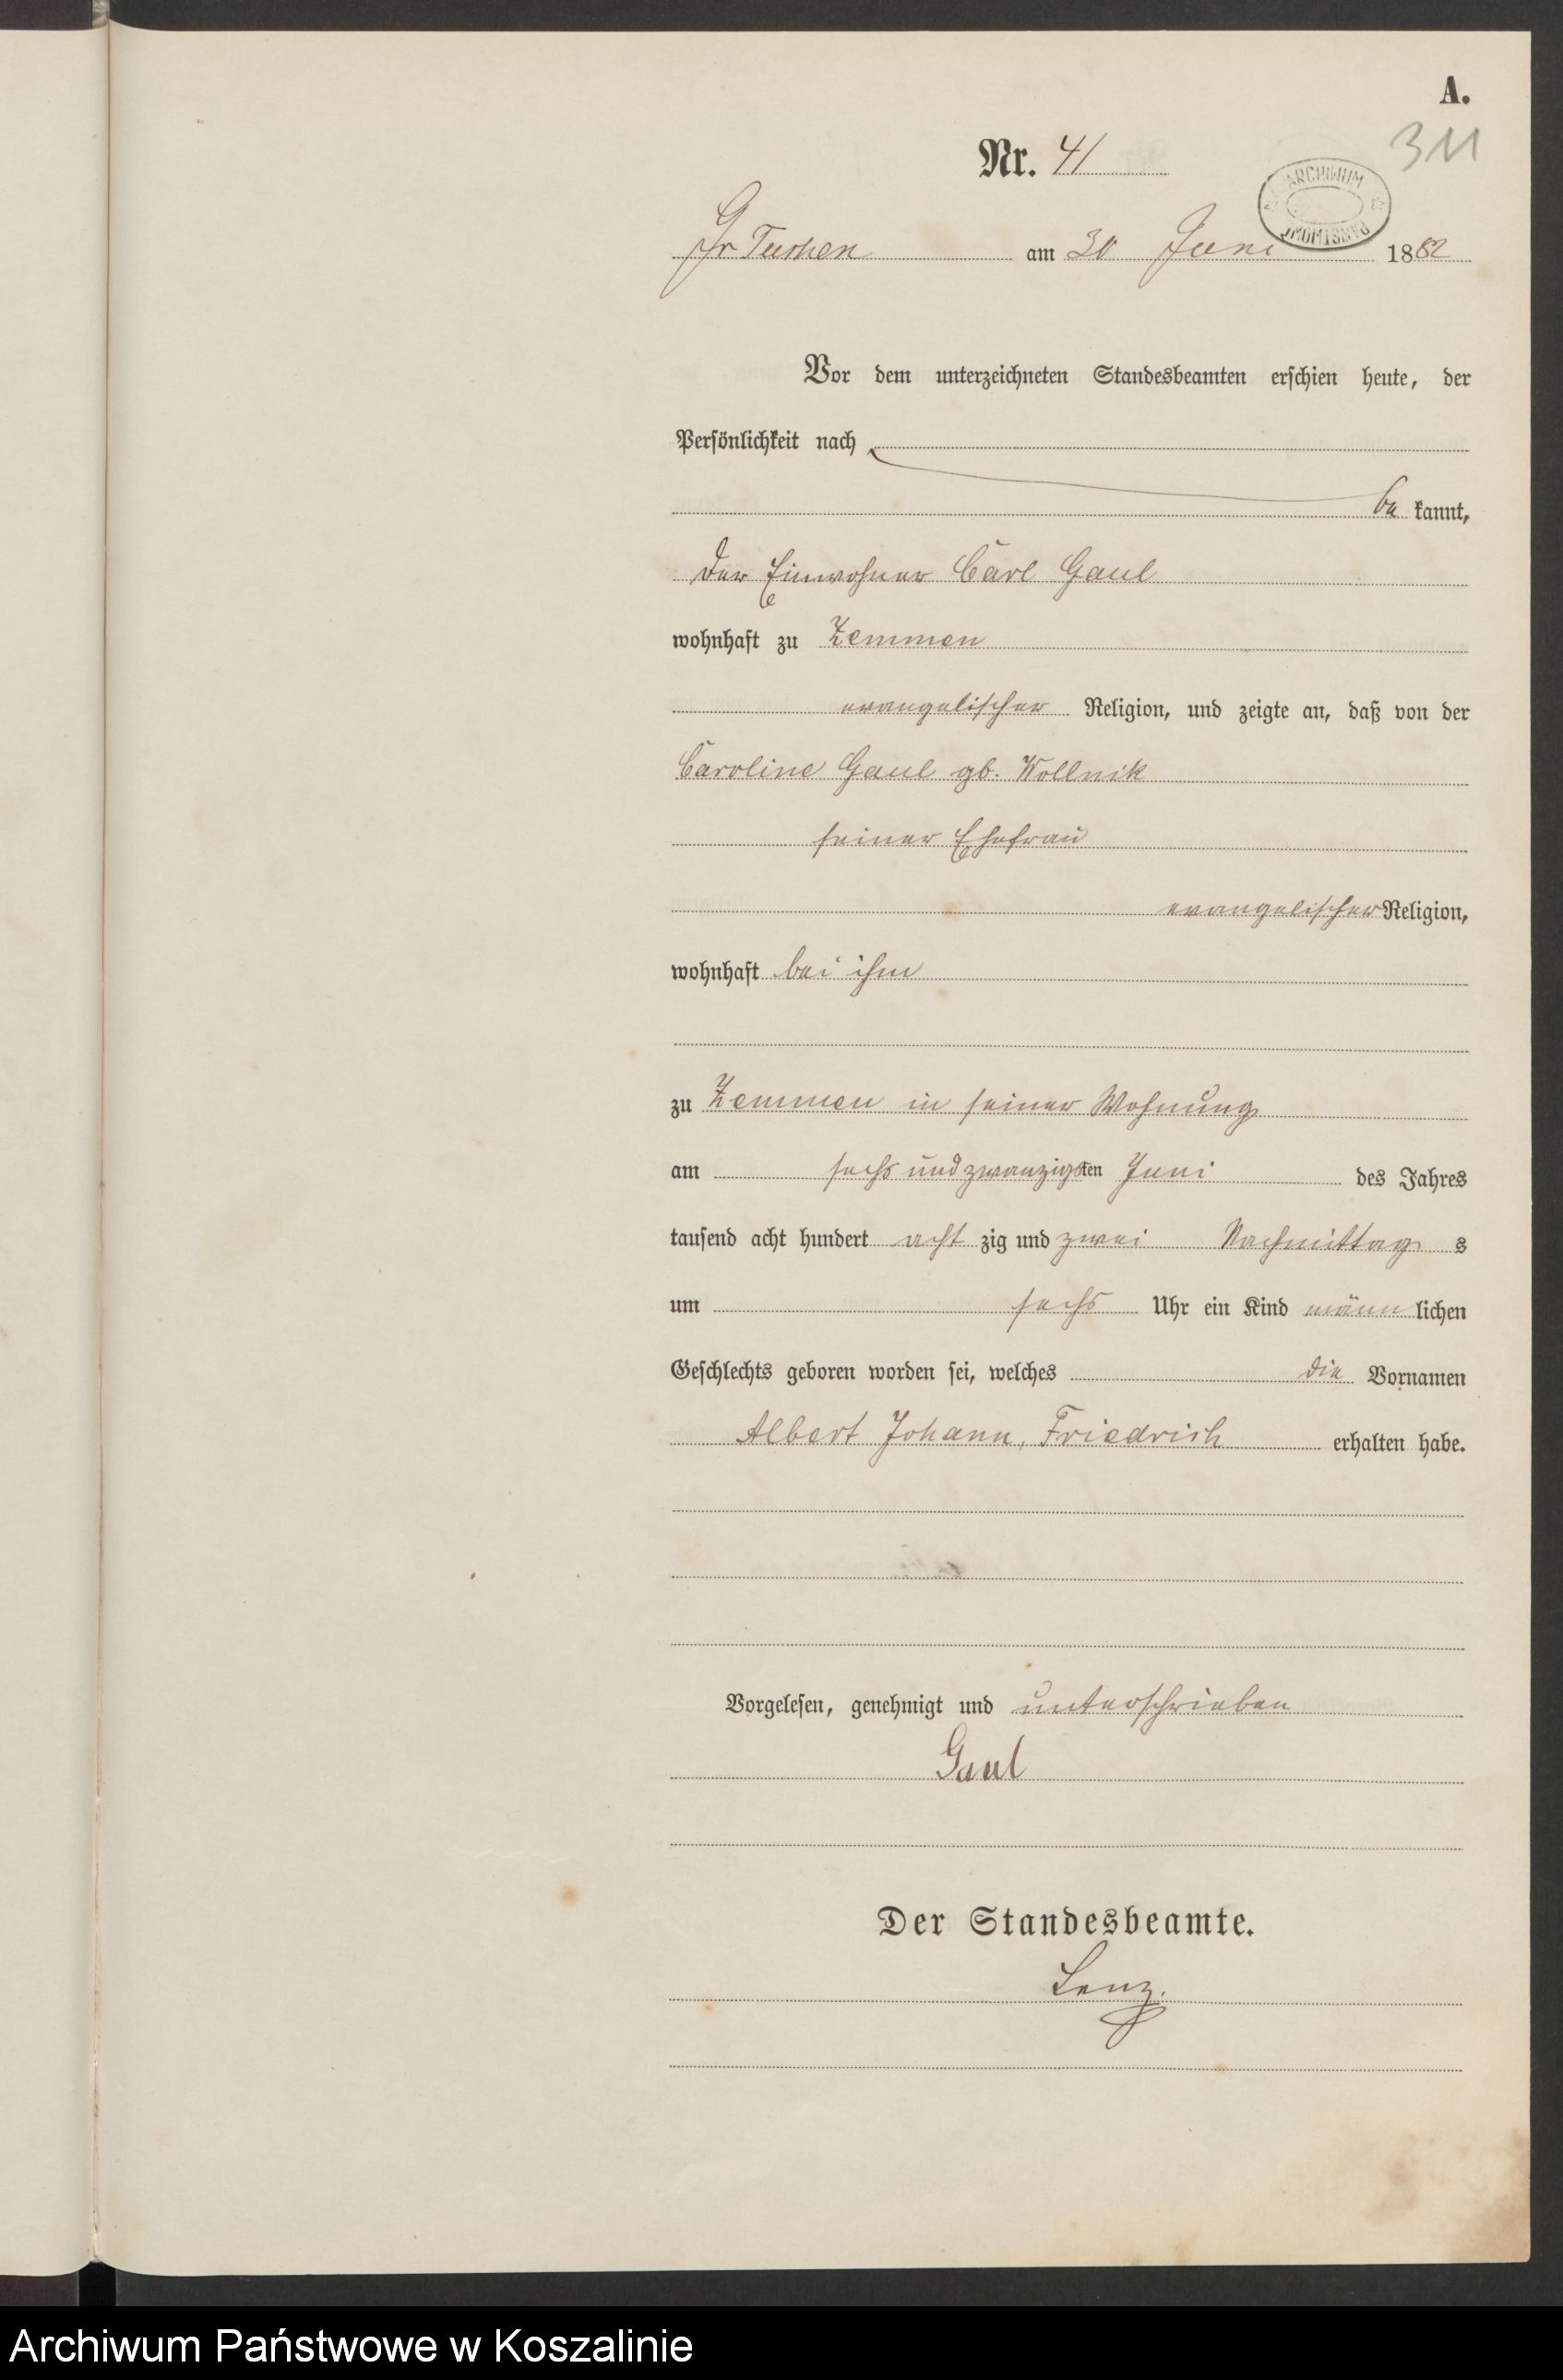 A.
311
Nr. 41
ARCHIWUM
PAŃSTWOWE
Gr Tuchen am 30 Juni 1882
Vor dem unterzeichneten Standesbeamten erschien heute, der
Persönlichkeit nach
be kannt,
der Einwohner Carl Gaul
wohnhaft zu Zemmen
evangelischer Religion, und zeigte an, daß von der
Caroline Gaul gb. Wollnik
seiner Ehefrau
evangelischer Religion,
wohnhaft bei ihm
zu Zemmen in seiner Wohnung
am sechs und zwanzigsten Juni des Jahres
tausend acht hundert acht zig und zwei Nachmittag s
um sechs Uhr ein Kind männ lichen
Geschlechts geboren worden sei, welches die Vornamen
Albert Johann, Friedrich erhalten habe.
Vorgelesen, genehmigt und unterschrieben
Gaul
Der Standesbeamte.
Lenz.
Archiwum Państwowe w Koszalinie